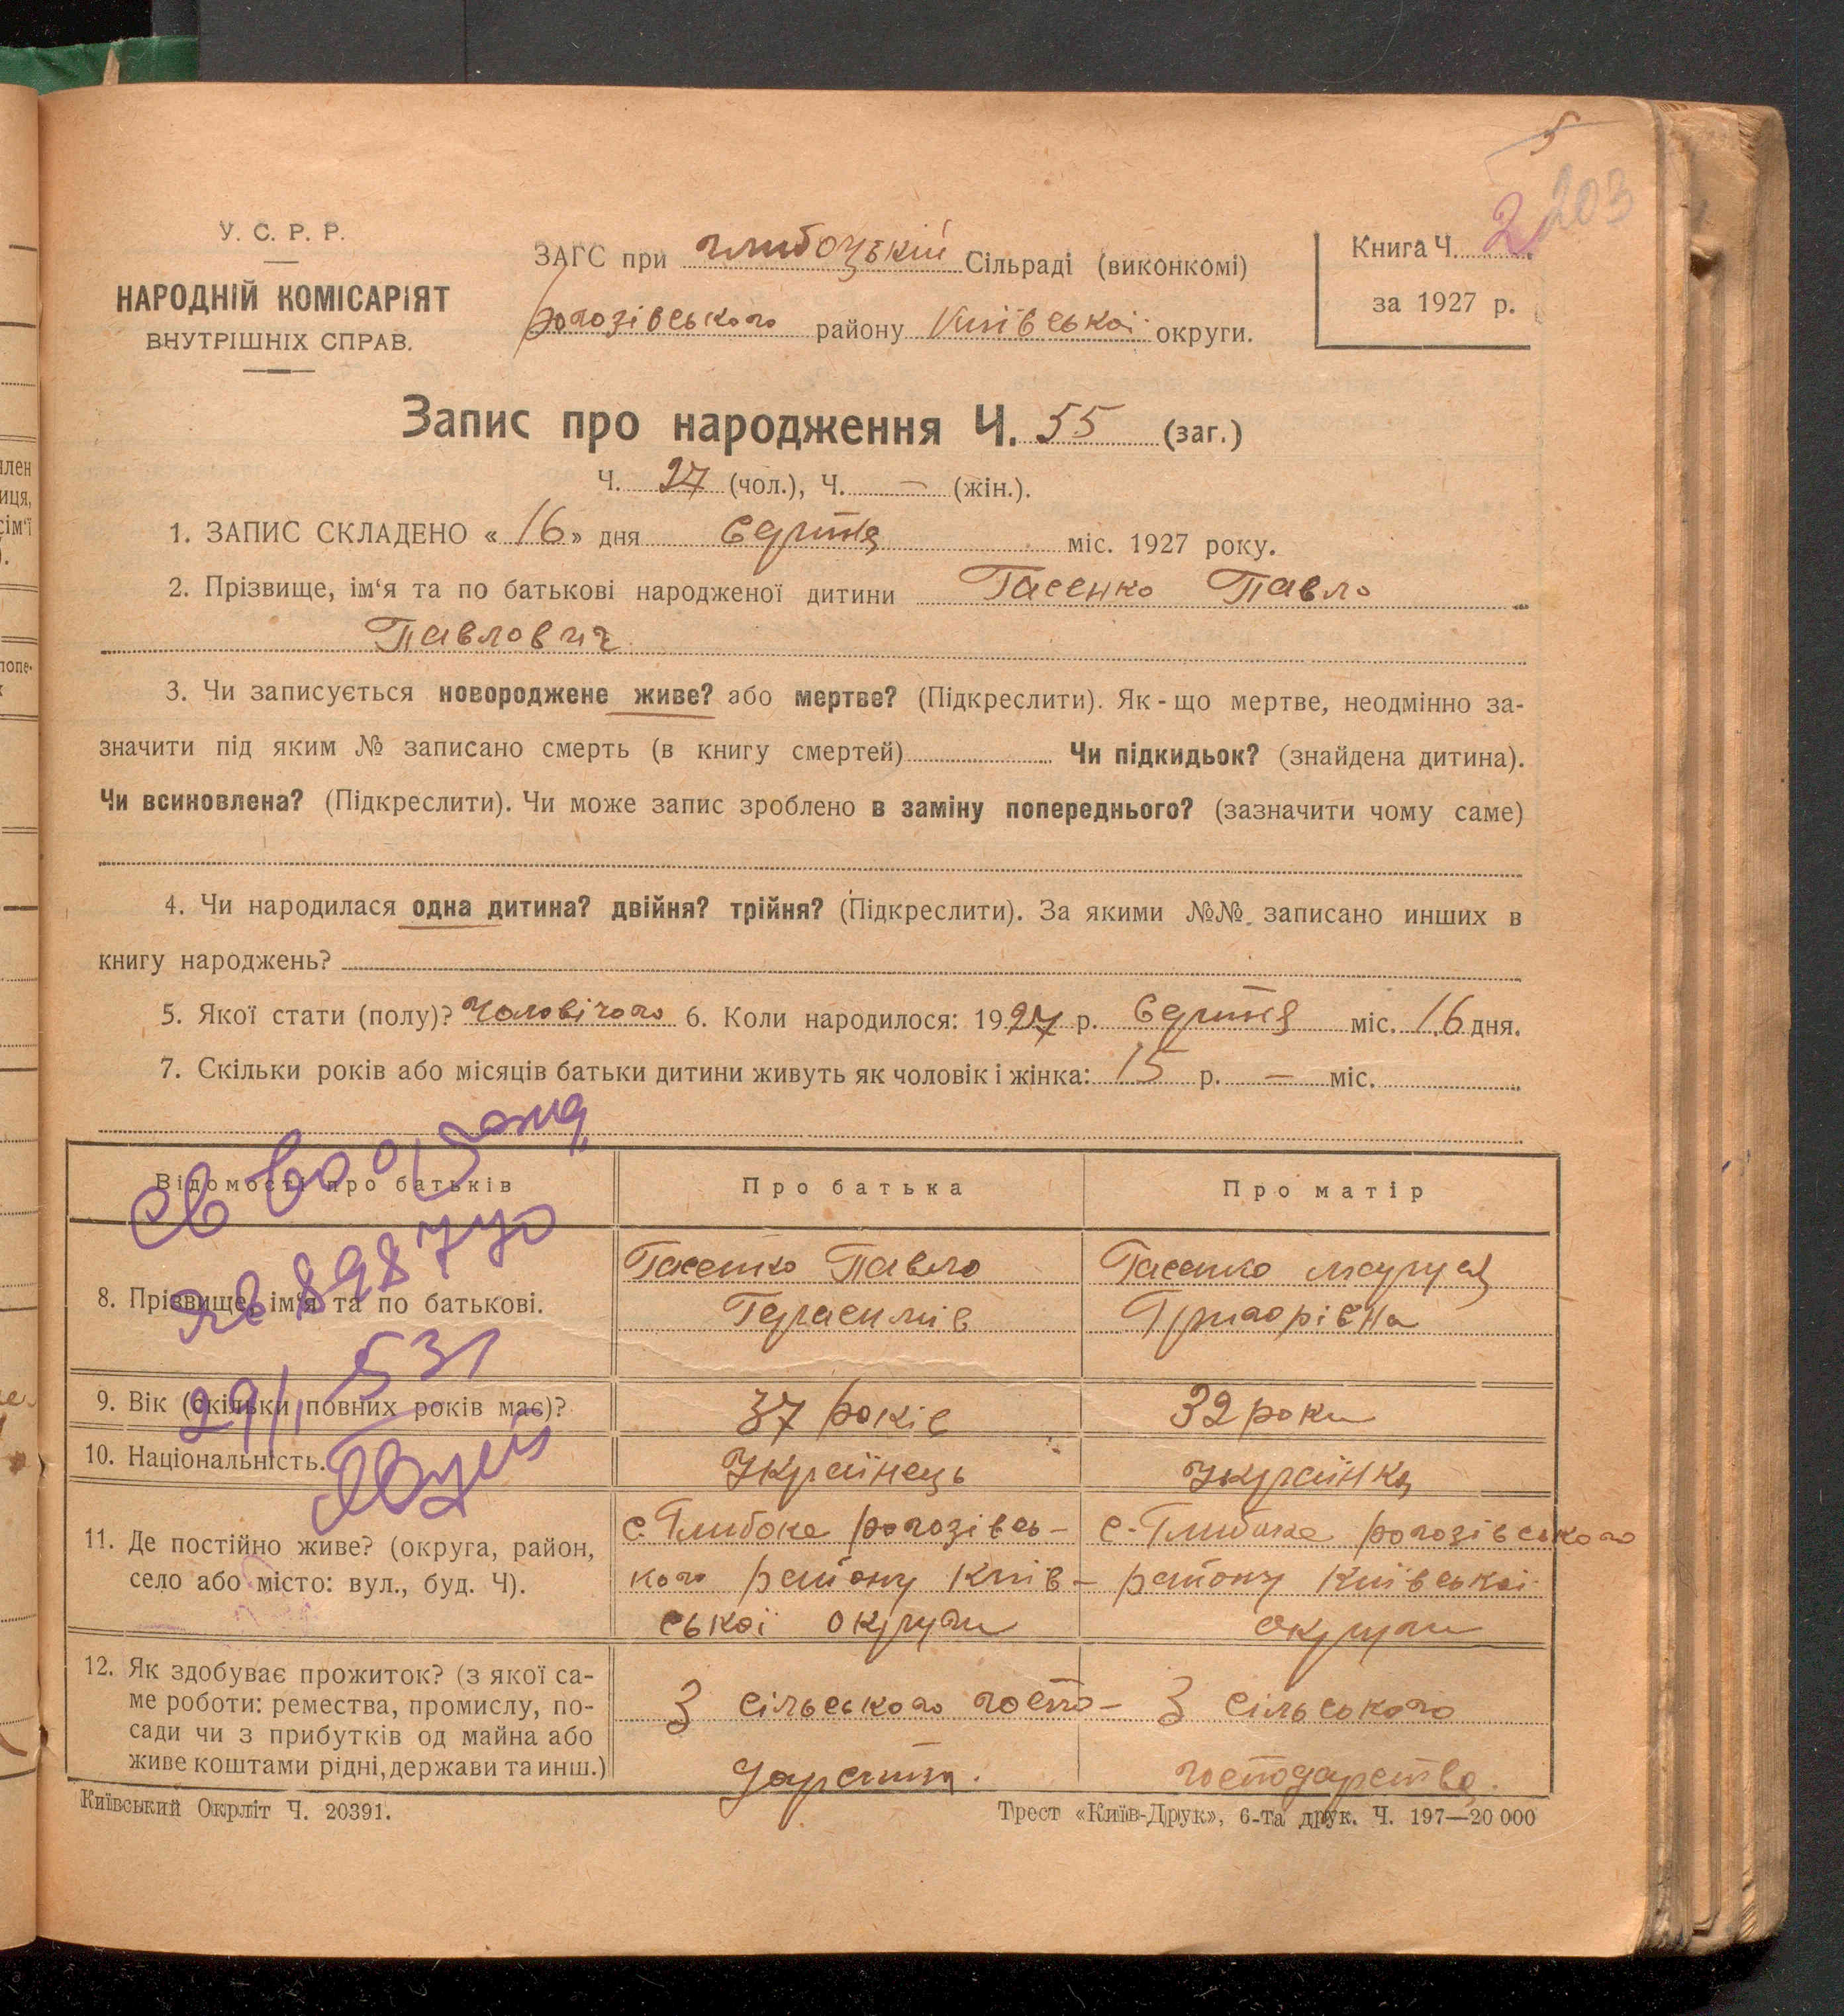 5
203
У. С. Р. Р.
НАРОДНІЙ КОМІСАРІЯТ
ВНУТРІШНІХ СПРАВ.
ЗАГС при глибоцькій Сільраді (виконкомі)
рогозівського району Київської округи.
Книга Ч. 2
за 1927 р.
Запис про народження Ч. 55 (заг.)
Ч. 27 (чол.), Ч. — (жін.).
1. ЗАПИС СКЛАДЕНО « 16 » дня серпня міс. 1927 року.
2. Прізвище, ім‘я та по батькові народженої дитини Гасенко Павло
Павлович
3. Чи записується новороджене живе? або мертве? (Підкреслити). Як-що мертве, неодмінно за-
значити під яким № записано смерть (в книгу смертей) Чи підкидьок? (знайдена дитина).
Чи всиновлена? (Підкреслити). Чи може запис зроблено в заміну попереднього? (зазначити чому саме)
4. Чи народилася одна дитина? двійня? трійня? (Підкреслити). За якими №№ записано инших в
книгу народжень?
5. Якої стати (полу)? Чоловічого 6. Коли народилося: 1927 р. серпня міс. 16 дня.
7. Скільки років або місяців батьки дитини живуть як чоловік і жінка: 15 р. — міс.
Відомості про батьків Про батька Про матір
8. Прізвище, ім‘я та по батькові.
Гасенко Павло
Герасимів
Гасенко
Григорівна
9. Вік (скільки повних років має)? 37 років 32 роки
10. Національність. Українець українка
11. Де постійно живе? (округа, район,
село або місто: вул., буд. Ч).
с. Глибоке рогозівсь-
кого району Київ-
ської округи
с. Глибоке рогозівського
району Київської
округи
12. Як здобуває прожиток? (з якої са-
ме роботи: ремества, промислу, по-
сади чи з прибутків од майна або
живе коштами рідні, держави та инш.)
З сільського госпо-
дарства.
З сільського
господарства.
531
Київський Окрліт Ч. 20391.
Трест «Київ-Друк», 6-та друк. Ч. 197—20 000